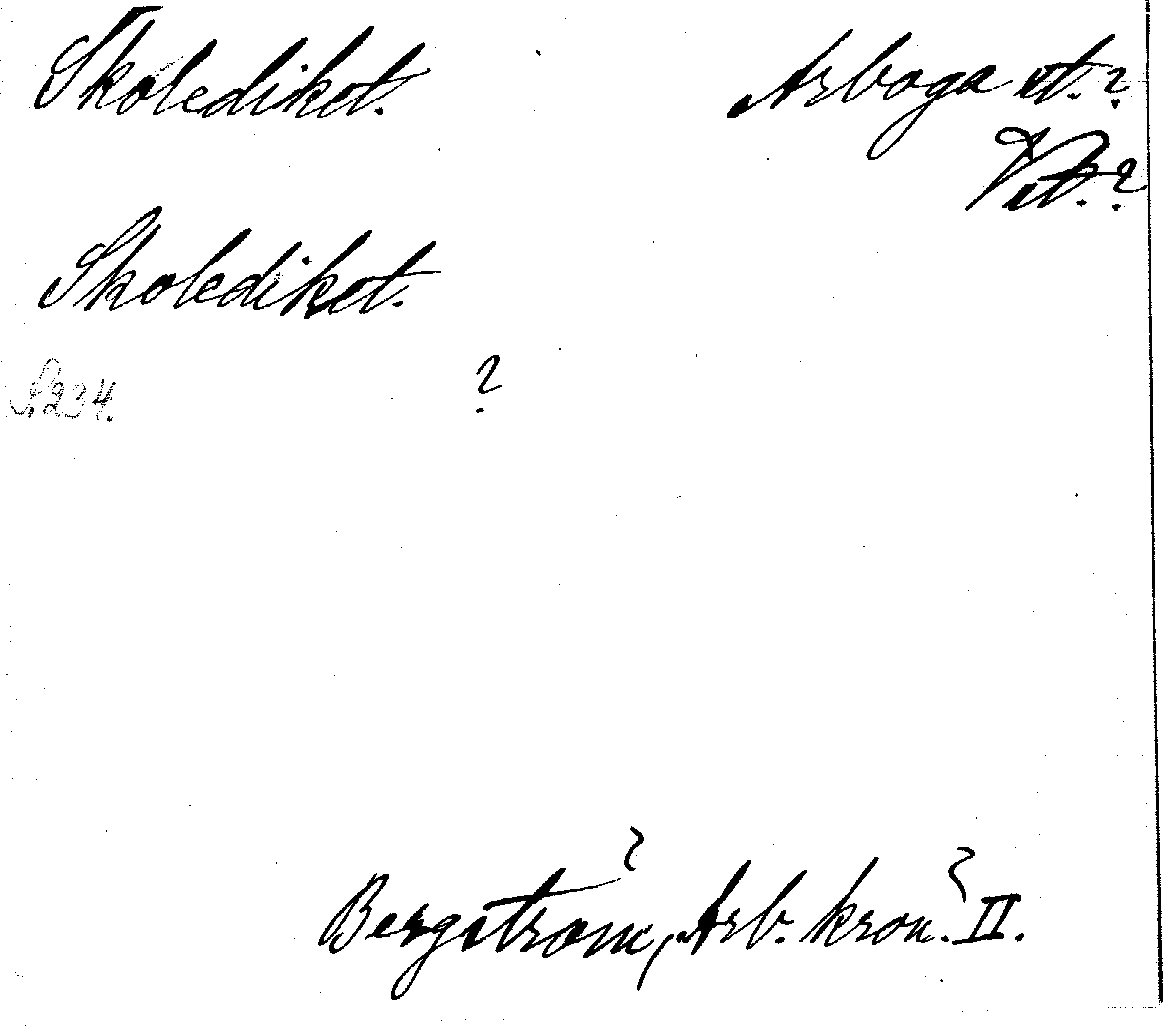 Skolediket. Arboga st.?
Vst.?
Skolediket.
S. 234. ?
Bergström, Arb. krön. II.